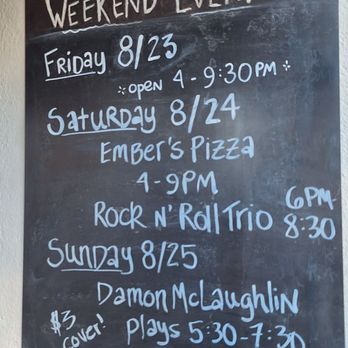 WEEKEND
FRIDAY 8/23
OPEN 4-9:30PM
SATURDAY 8/24
EMBER'S PIZZA
4-9PM
ROCK N' ROLL TRIO 6PM-8:30
SUNDAY 8/25
DAMON MCLAUGHLIN
$3 COVER! PLAYS 5:30-7:30